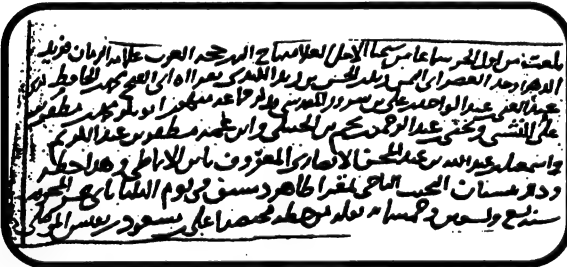 بلغت من اول الجزء سماعا من سيدنا الاجل العلامة تاج الدين حجة العرب علامة الزمان فريد
الدهر اوحد العصر ابي اليمن زيد بن الحسن بن زيد الكندي بقراءة ابي الفتح محمد بن الحافظ
عبد الغني بن عبد الواحد بن علي بن سرور المقدسي ابو بكر محمد بن مظفر بن
علي النشبي عبد الرحمن بن نجم بن الحنبلي وابن عمه مظفر بن عبد الكريم
واسمعيل بن عبد الله بن عبد المحسن الانصاري المعروف بابن الانماطي وهذا خطه
وذلك التاجي بمقرا ظاهر دمشق في يوم الثلثا المحرم
سنة سبع وتسعين وخمسمائة نقله من خطه مختصرا علي بن مسعود بن نفيس الموصلي